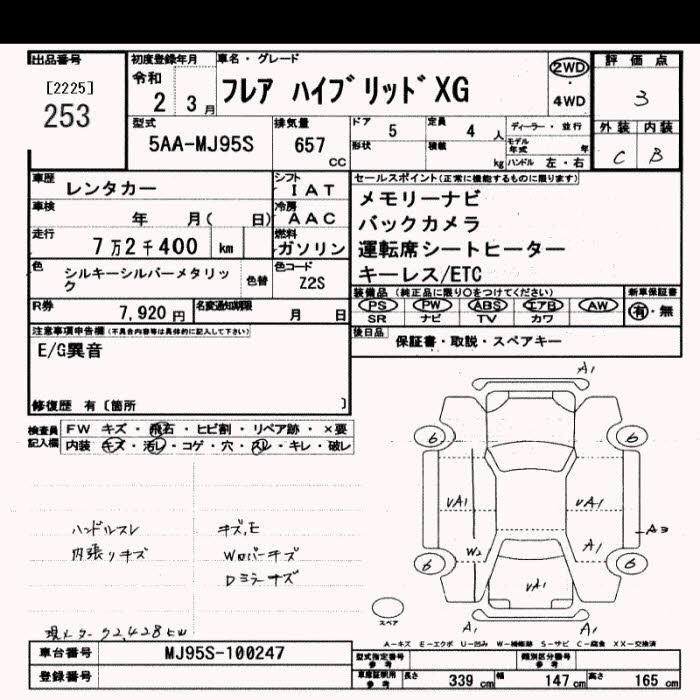 出品番号
[2225]
253
初度登録年月
令和
2 3月
車名・グレード
フレア ハイブリッドXG
2WD
・
4WD
評価点
3
型式
5AA-MJ95S
排気量
657
CC
ドア 5
定員 4 人
形状
積載 kg
ディーラー・並行
モデル年式 年
ハンドル 左・右
外装 内装
C B
車歴 レンタカー
シフト IAT
車検 年 月( 日)
冷房 AAC
走行 7万2千400 km
燃料 ガソリン
色 シルキーシルバーメタリック
色替
色コード Z2S
R券 7,920円
名変通知期限 月 日
セールスポイント(正常に機能するものに限ります)
メモリーナビ
バックカメラ
運転席シートヒーター
キーレス/ETC
装備品(純正品に限り○をつけてください)
PS PW ABS エアB AW
SR ナビ TV カワ
新車保証書
有・無
後日品 保証書・取説・スペアキー
注意事項申告欄(不具合内容等は具体的に記入して下さい)
E/G異音
修復歴 有〔箇所 〕
検査員記入欄
FW キズ・飛石・ヒビ割・リペア跡・×要
内装 キズ・汚レ・コゲ・穴・スレ・キレ・破レ
ハンドルスレ
内張りキズ
キズ,E
Wロバーキズ
Dミラーキズ
現メーター 92,428km
A1
6 6
VA1 VA1
A3
W2 A1
6 6
VA1
A1 A1
スペア
A-キズ E-エクボ U-凹み W-補修跡 S-サビ C-腐食 XX-交換済
車台番号 MJ95S-100247
登録番号
型式指定番号 参考
類別区分番号 参考
車庫証明用 参考 長さ 339cm 幅 147cm 高さ 165cm